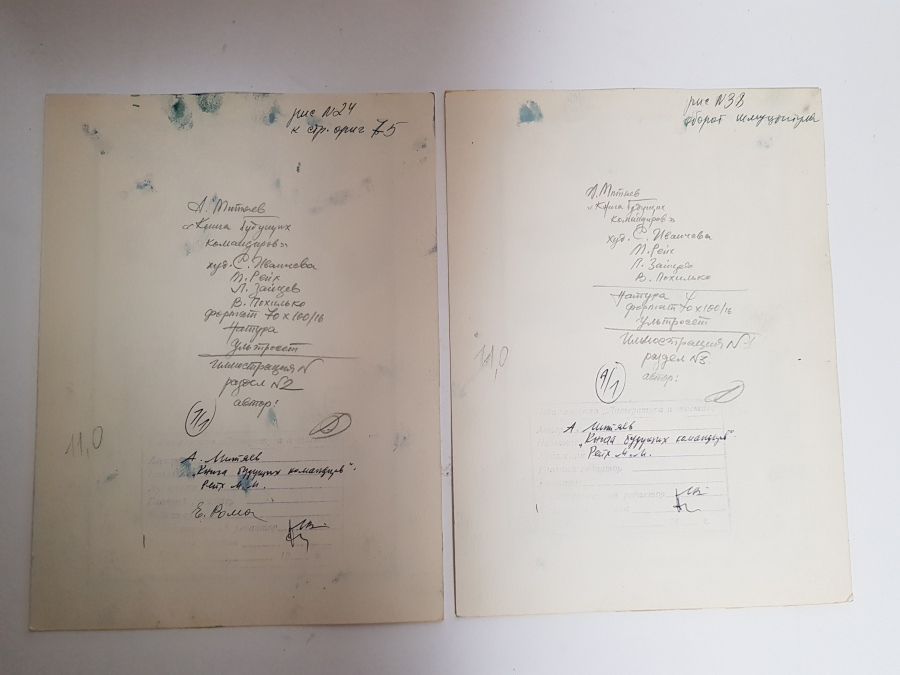 рис №24
к стр. ориг 75
А. Митяев
"Книга будущих
командиров"
худ. С. Иванчева
М. Рейх
Л. Зайцев
В. Похилько
формат 70х100/16
Натура
Ультросет
Иллюстрация №
раздел №2
автор:
1/1
11,0
А. Митяев
"Книга будущих командиров".
Рейх М.М.
рис №38
оборот шмуцтитула
А. Митяев
"Книга будущих
командиров"
худ. С. Иванчева
М. Рейх
Л. Зайцев
В. Похилько
Натура
формат 70х100/16
Ультросет
Иллюстрация №1
раздел №3
автор:
1/1
11,0
А. Митяев
"Книга будущих командиров".
Рейх М.М.